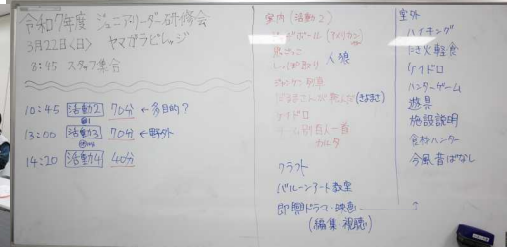 令和7年度 ジュニアリーダー研修会
3月22日〈日〉 ヤマガラビレッジ
8:45 スタッフ集会
10:45 活動2 70分 ← 多目的?
13:00 活動3 70分 ← 野外
14:20 活動4 40分
室内(活動2)
人狼
しっぽ取り
ジャンケン列車
だるまさんが転んだ
ケイドロ
チーム対抗百人一首
カルタ
クラフト
バルーンアート教室
即興ドラマ・映画
(編集 視聴)
室外
ハイキング
たき火軽食
ケイドロ
ハンターゲーム
遊具
施設説明
食材ハンター
今風昔ばなし